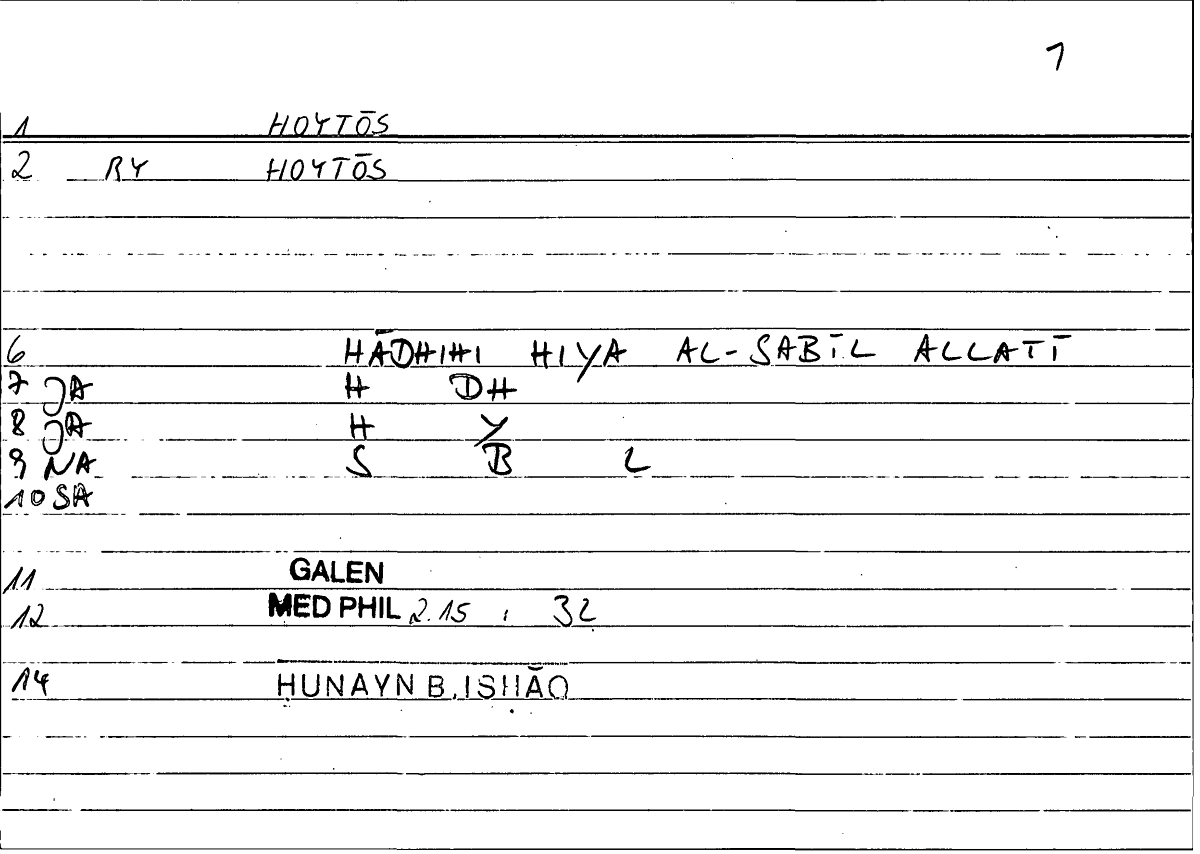 1
1 HOYTŌS
2 RY HOYTŌS
6 HĀDHIHI HIYA AL-SABĪL ALLATĪ
7 JA H DH
8 JA H Y
9 NA S B L
10 SA
11 GALEN
12 MED PHIL 2.15 , 32
14 ḤUNAYN B. ISḤĀQ